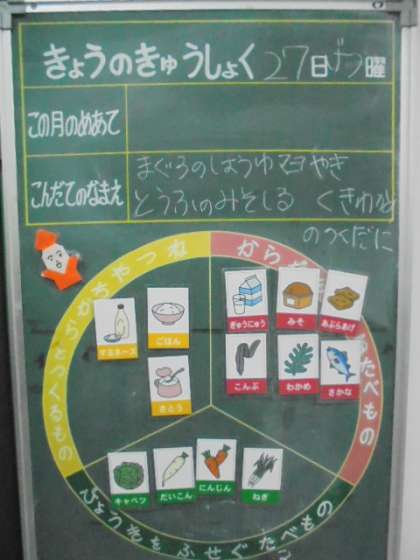 きょうのきゅうしょく 27日げつ曜
この月のめあて
こんだてのなまえ
まぐろのしょうゆマヨやき
とうふのみそしる くきわかめ
のつくだに
ちからやねつ
をつくるもの
からだ
たべもの
マヨネーズ
ごはん
さとう
ぎゅうにゅう
みそ
あぶらあげ
こんぶ
わかめ
さかな
キャベツ
だいこん
にんじん
ねぎ
びょうきをふせぐたべもの